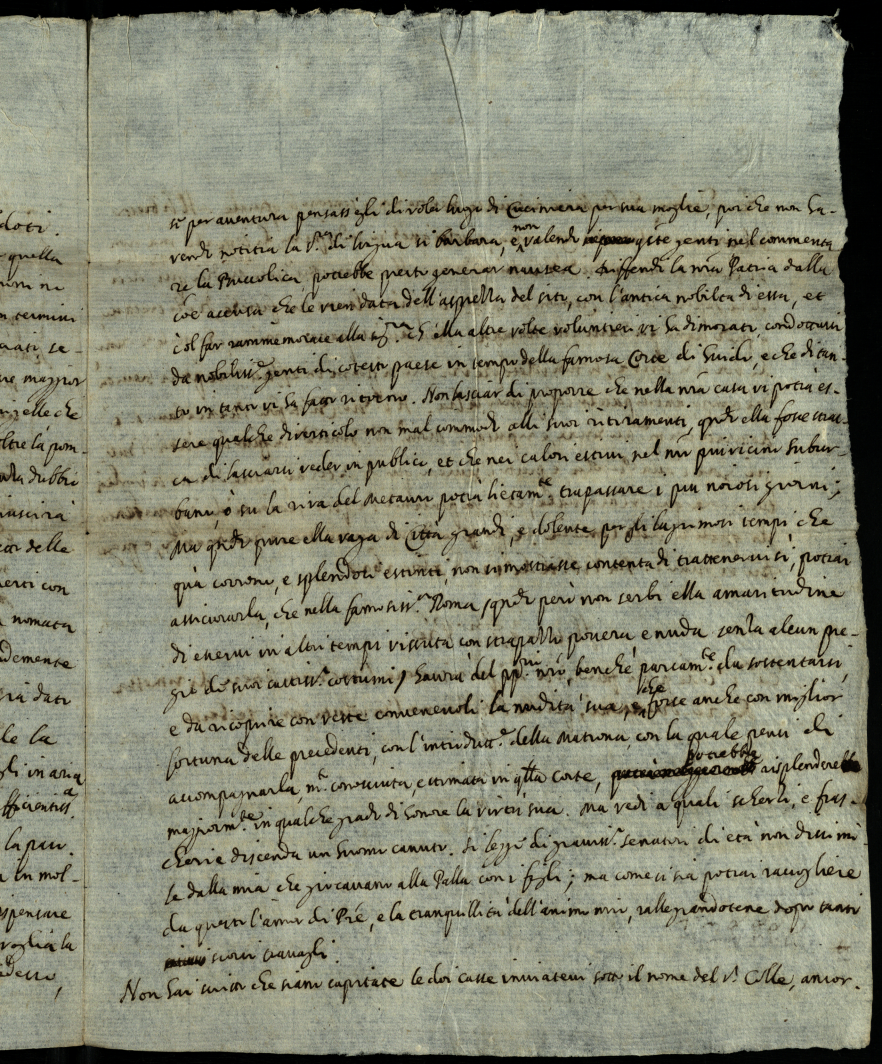 doti.
quella
termini
se-
maggior
che
oltre la pom-
dubbi
riuscirà
delle
con
nomata
demente
dati
le la
gli in aria
fficientiss.ª
la pau.
in mol-
spensare
voglia la
si per aventura pensass'egli di voler di Cuciniera per sua moglie, poi che non ha-
vendo notitia la S.ra di lingua sì barbara, e non valendo q.ste genti nel commenta
re la Buccolica potrebbe presto generar nausea. Diffendi la mia Patria dalla
accusa che le vien data dell'asprezza del sito, con l'antica nobiltà di essa, et
col far rammemorare alla sig.ra ch'ella altre volte volontieri vi ha dimorato, condottavi
da nobiliss.e genti di cotesto paese in tempo della famosa Corte di Guido, e che di tan-
to in tanto vi ha fatto ritorno. Non lasciar di proporre che nella mia casa vi potrà es-
sere qualche diverticolo non mal commodo alli suoi ritiramenti, q.do ella fosse strac-
ca di lasciarsi veder in publico, et che nei calori estivi nel mio più vicino subur-
bano, o su la riva del Metauro potrà lietam.e trapassare i più noiosi giorni;
Ma q.do pure ella vaga di Città grandi, e dolente per gli lagrimosi tempi che
quà corrono, e splendori estinti, non si mostrasse contenta di trattenervisi, potrai
assicurarla, che nella famosiss.a Roma /q.do però non serbi ella amaritudine
di esservi in altri tempi vissuta con strapazzi povera e nuda senza alcun pre-
gio de suoi castiss.i costumi/ havrà del pp.rio n.ro, benché parcam.e da sostentarsi,
e da ricoprire con veste convenevoli la nudità sua, e che forse anche con miglior
fortuna delle precedenti, con l'introdutt.e della Matrona, con la quale pensi di
accompagnarla, m.to conosciuta, e stimata in q.lla Corte, potrebbe risplendere
maggiorm.te in qualche grado di honore la virtù sua. Ma vedi a quali scherzi, e fras-
cherie discenda un huomo canuto. Si legge di graviss.i senatori di età non dissimi
le dalla mia che giocavano alla Palla con i figli; ma come si sia potrai raccogliere
da questo l'amor di P.re, e la tranquillità dell'animo mio, rallegrandotene dopo tanti
suoi travagli.
Non hai scritto che siano capitate le doi casse inviatevi sotto il nome del S.r Colle, ancor.